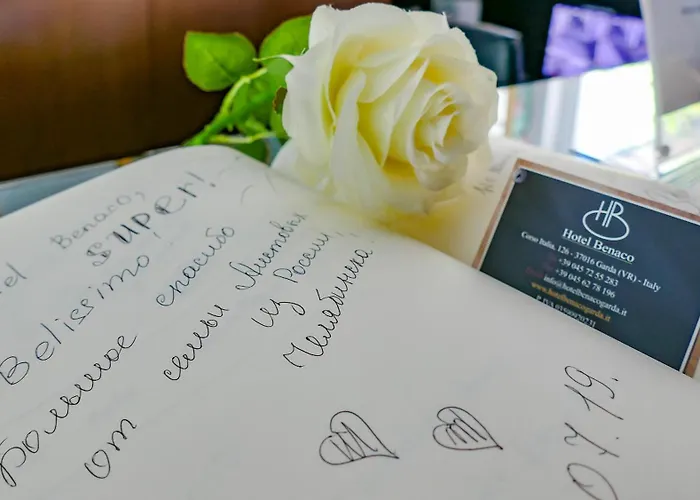 Benaco,
super!
Belissimo,
Большое спасибо
от семьи
из России,
Челябинска
07.19.
HB
Hotel Benaco
Corso Italia, 126 - 37016 Garda (VR) - Italy
+39 045 72 55 283
+39 045 62 78 196
info@hotelbenacogarda.it
www.hotelbenacogarda.it